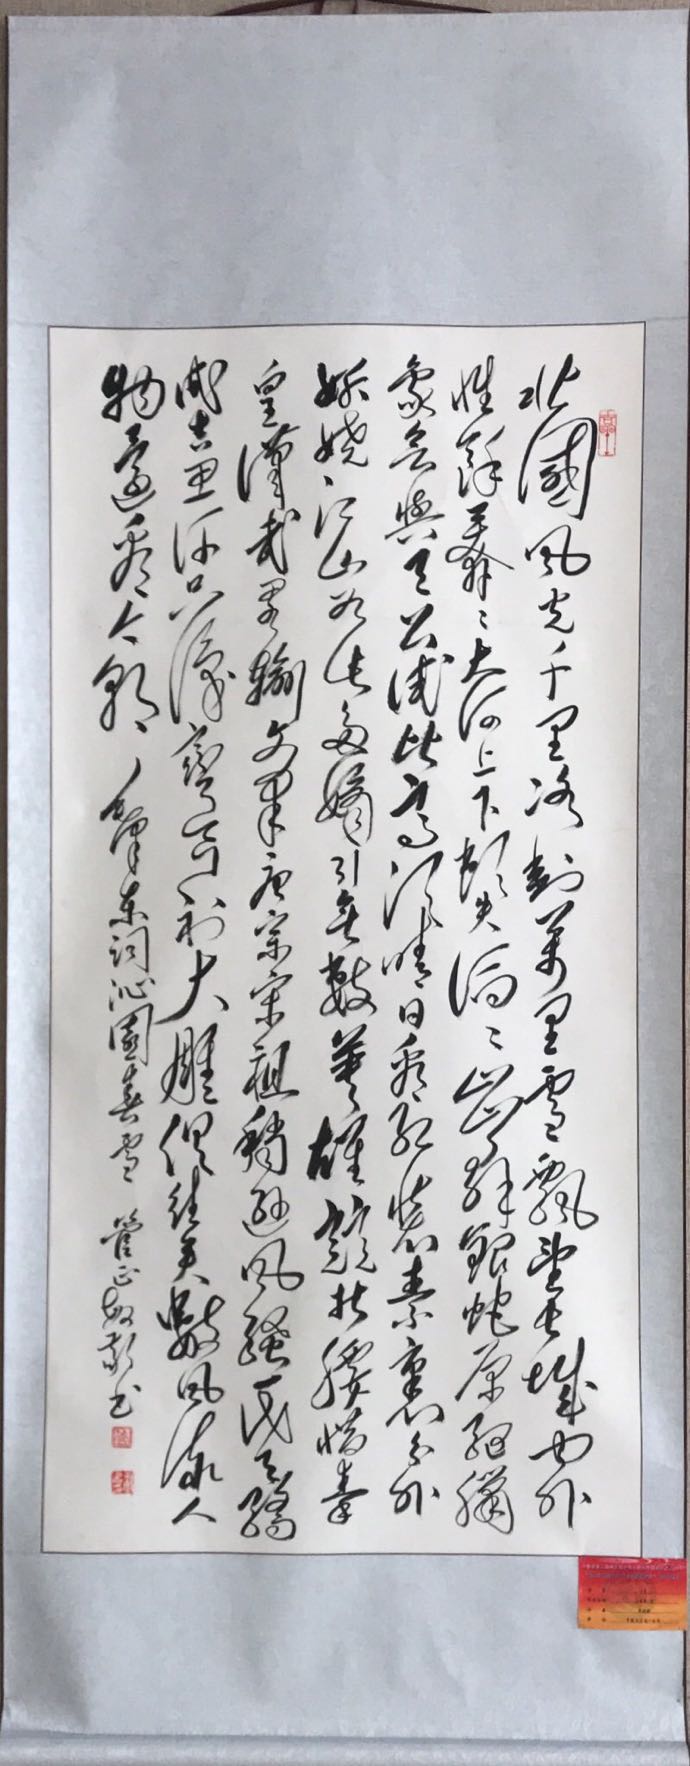 北國風光千里冰封萬里雪飄望長城内外
惟餘莽〻大河上下頓失滔〻山舞銀蛇原馳蠟
象欲與天公試比高須晴日看紅裝素裹分外
妖嬈江山如此多嬌引無數英雄競折腰惜秦
皇漢武略輸文采唐宗宋祖稍遜風騷一代天驕
成吉思汗只識彎弓射大雕俱往矣數風流人
物還看今朝 毛澤東詞沁園春雪 管正敏書